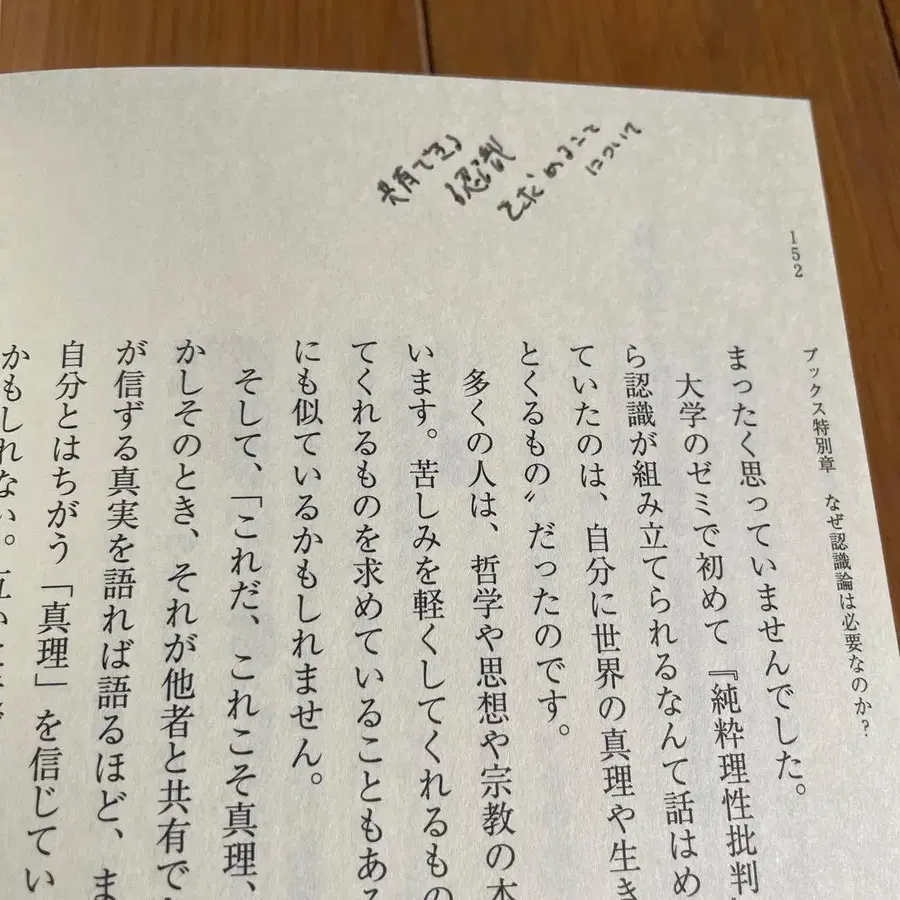 共有できる
認識
を求めること
について
152
ブックス特別章 なぜ認識論は必要なのか?
まったく思っていませんでした。
大学のゼミで初めて『純粋理性批判
ら認識が組み立てられるなんて話はめ
ていたのは、自分に世界の真理や生き
とくるもの〟だったのです。
多くの人は、哲学や思想や宗教の本
います。苦しみを軽くしてくれるもの
てくれるものを求めていることもある
にも似ているかもしれません。
そして、「これだ、これこそ真理、
かしそのとき、それが他者と共有で
が信ずる真実を語れば語るほど、ま
自分とはちがう「真理」を信じてい
かもしれない。互いに